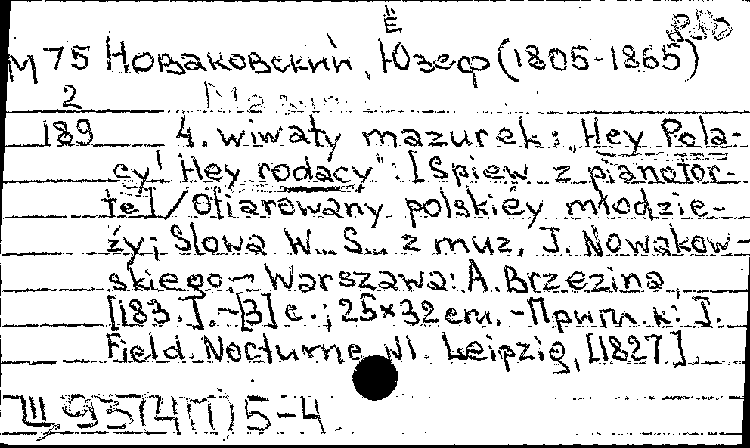 Ё
М 75 Новаковский, Юзеф (1805-1865)
2
189 4. wiwaty mazurek: „Hey Pola-
cy! Hey rodacy": [Śpiew z pianofor-
te] / Ofiarowany polskiéy młodzie-
ży; Słowa W... S... z muz. J. Nowakow-
skiego.- Warszawa: A. Brzezina,
[183.].-[3] с.; 25×32 см. - Припл. к: J.
Field. Nocturne №1. Leipzig, [1827]
Щ 93(4П) 5-4